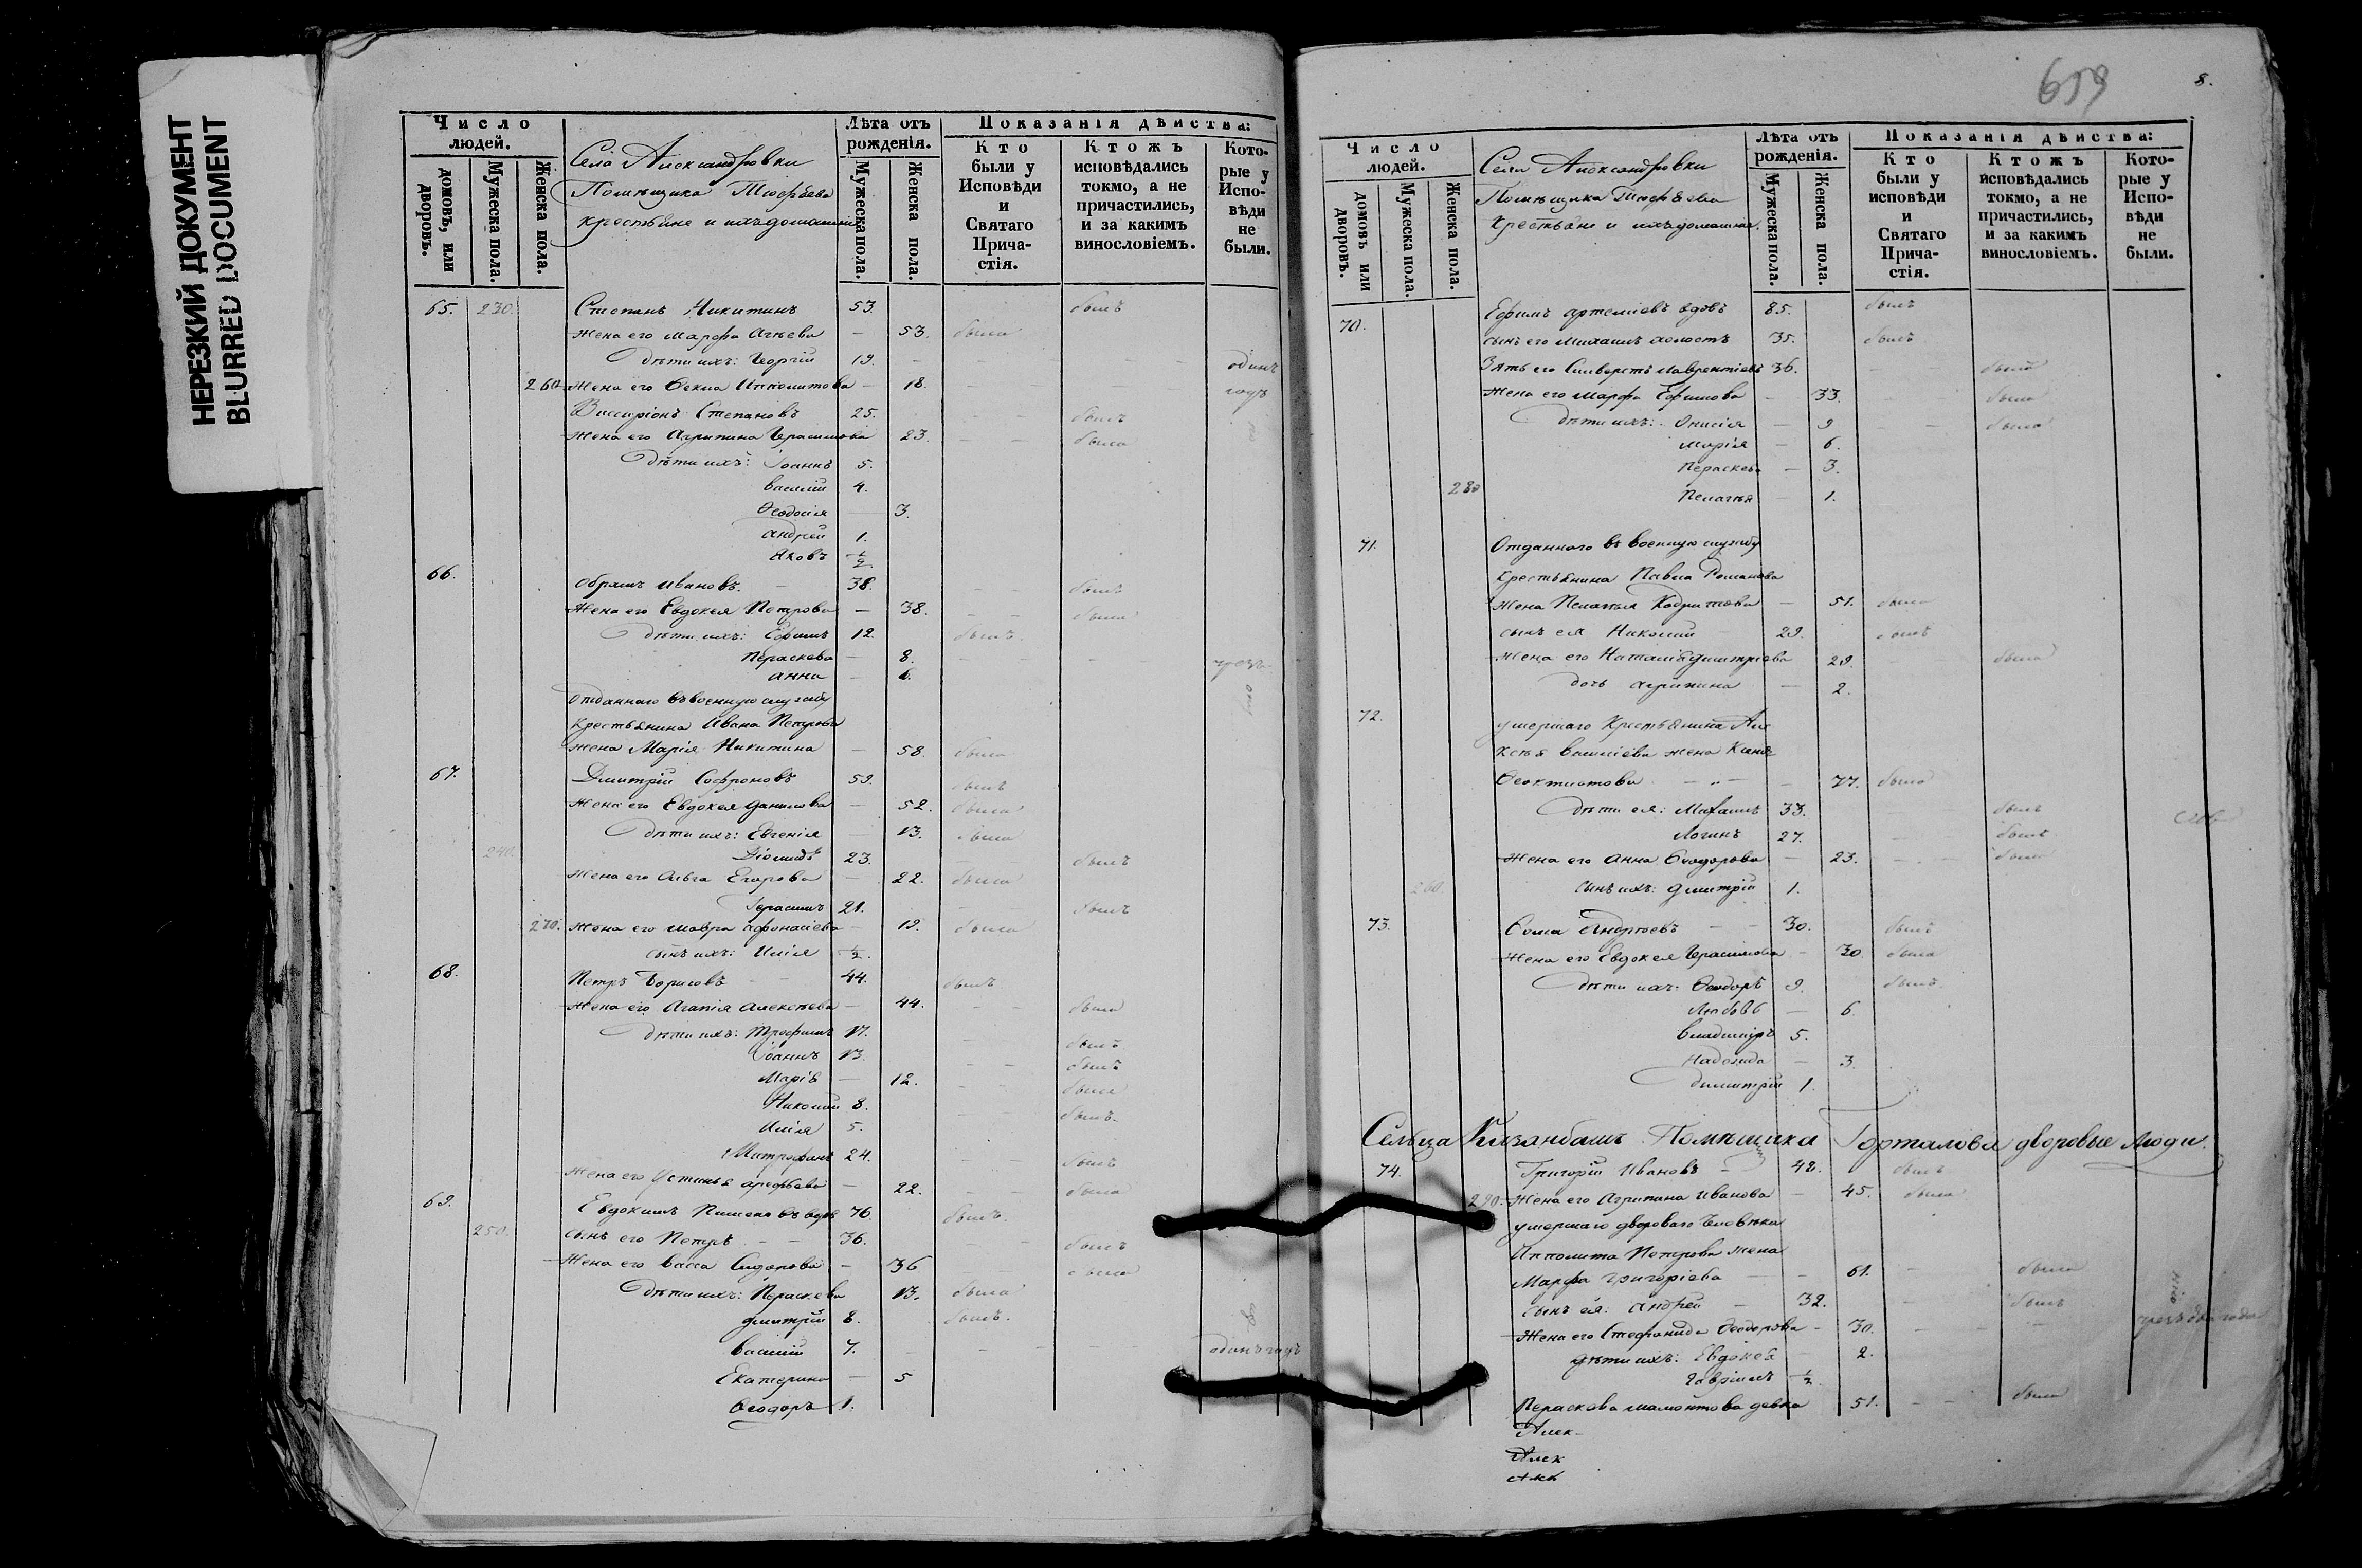 НЕРЕЗКИЙ ДОКУМЕНТ
BLURRED DOCUMENT
Число людей.
домовъ, или дворовъ.
Мужеска пола.
Женска пола.
Села Александровки
Помѣщика Тюфѣева
крестьяне и ихъ домашніе
Лѣта отъ рожденія.
Мужеска пола.
Женска пола.
Показанія дѣйства:
Кто были у Исповѣди и Святаго Прича-стія.
Ктожъ исповѣдались токмо, а не причастились, и за какимъ винословіемъ.
Кото-рые у Испо-вѣди не были.
65. 230. Степанъ Никитинъ 53. былъ
жена его Марфа 53. была
дѣти ихъ: Георгій 19. одинъ
260. жена его Ѳекла Ипполитова 18. годъ
Виссаріонъ Степановъ 25. былъ
жена его Агрипина Герасимова 23. была
дѣти ихъ: Іоаннъ 5.
Василій 4.
Ѳеодосія 3.
Андрей 1.
Яковъ ½
66. Ивановъ 38. былъ
жена его Евдокея Петрова 38. была
дѣти ихъ: Ефимъ 12. былъ
Пераскева 8.
Анна 6.
Отданнаго въ военную службу
крестьянина Ивана Петрова
жена Марія Никитина 58. была
67. Дмитрій Софроновъ 59. былъ
жена его Евдокея Данилова 52. была
дѣти ихъ: Евгенія 13. была
240. Діомидъ 23. былъ
жена его Ольга Егорова 22. была
Герасимъ 21. былъ
270. жена его Мавра Афонасіева 19. была
сынъ ихъ: Илія ½.
68. Петръ Борисовъ 44. былъ
жена его Агапія Алексѣева 44. была
дѣти ихъ: Трофимъ 17. былъ
Іоаннъ 13. былъ
Марія 12. была
Николай 8. былъ
Илія 5.
Митрофанъ 24. былъ
жена его Устинья Арефьева 22. была
69. Евдокимъ Пименовъ вдовъ 76. былъ
250. сынъ его Петръ 36. былъ
жена его Васса Сидорова 36 была
дѣти ихъ: Пераскева 13. была
Дмитрій 8. былъ
Василій 7. одинъ годъ
Екатерина 5
Ѳеодоръ 1.
659
8.
Число людей.
домовъ или дворовъ.
Мужеска пола.
Женска пола.
Села Александровки
Помѣщика Тюфѣева
Крестьяне и ихъ домашніе.
Лѣта отъ рожденія.
Мужеска пола.
Женска пола.
Показанія дѣйства:
Кто были у исповѣди и Святаго Прича-стія.
Ктожъ исповѣдались токмо, а не причастились, и за какимъ винословіемъ.
Кото-рые у Испо-вѣди не были.
70. Ефимъ Артеміевъ вдовъ 85. былъ
сынъ его Михаилъ холостъ 35. былъ
Зять его Сильверстъ Лаврентіевъ 36. былъ
жена его Марфа Ефимова 33. была
дѣти ихъ: Онисія 9 была
Марія 6.
Пераскева 3.
280 Пелагія 1.
71. Отданнаго въ военную службу
крестьянина Павла Романова
жена Пелагія 51. была
сынъ ея Николай 29. былъ
жена его Наталія Дмитріева 29. была
дочь Агрипина 2.
72. умершаго крестьянина Але
ксѣя Василіева жена Ксенія
Ѳеоктистова 77. была
дѣти ея: Михаилъ 33. былъ
Логинъ 27. былъ
жена его Анна Ѳеодорова 23. была
260 сынъ ихъ: Дмитрій 1.
73. Ѳома Андреевъ 30. былъ
жена его Евдокея Герасимова 30. была
дѣти ихъ: Ѳеодоръ 9. былъ
Любовь 6
Владиміръ 5.
Надежда 3.
Димитрій 1.
Сельца Кизанбашъ Помѣщика Горталова дворовые люди.
74. Григорій Ивановъ 48. былъ
290. жена его Агрипина Иванова 45. была
умершаго двороваго человѣка
Ипполита Петрова жена
Марфа Григоріева 61. была
сынъ ея: Андрей 32. былъ
жена его Стефанида Ѳеодорова 30.
дѣти ихъ: Евдокея 2.
Гавріилъ ½.
Пераскева Мамонтова девка 51. была
Алек-
Алек